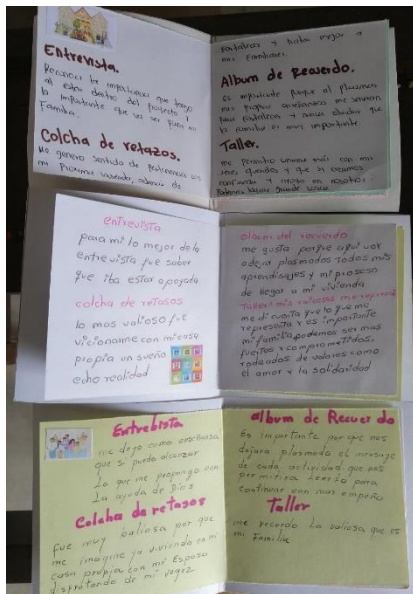 Entrevista.
Reconocí la importancia que tengo
al estar dentro del proyecto y
lo importante que va ser para mi
Familia.
Colcha de retazos.
Me genero sentido de pertenencia con
mi Proxima vivienda, además de
fortalecer y trata mejor a
mis Familiares.
Album de Recuerdo.
Es importante porque al plasmar
mis propias enseñanzas me servirán
para fortalecer y nunca olvidar que
la familia es muy importante.
Taller.
me permitio unirme más con mis
seres queridos y que si creamos
confianza y apoyo en nosotros
Podemos lograr grandes cosas.
entrevista
para mi lo mejor de la
entrevista fue saber
que iba estar apoyada
colcha de retasos
lo mas valioso fue
vicionarme con mi casa
propia un sueño
echo realidad
album del recuerdo
me gusta porque aqui voy
a dejar plasmados todos mis
aprendisajes y mi proseso
de llegar a mi vivienda
Taller: mis valiosas me
me di cuenta que lo que me
representa y es importante
mi familia podemos ser mas
fuertes y comprometidos.
rodeados de valores como
el amor y la solidaridad
Entrebista
me dejo como enseñansa
que si puedo alcanzar
Lo que me propongo con
La ayuda de Dios
Colcha de retasos
fue muy baliosa por que
me imagine ya viviendo en mi
casa propia con mi Esposo
disfrutando de mi vegez
album de Recuerdo
Es importante por que nos
dejara plasmado el mensaje
de cada actividad que nos
permitira Leerlo para
continuar con mas empeño
Taller
me recordo La valiosa que es
mi Familia